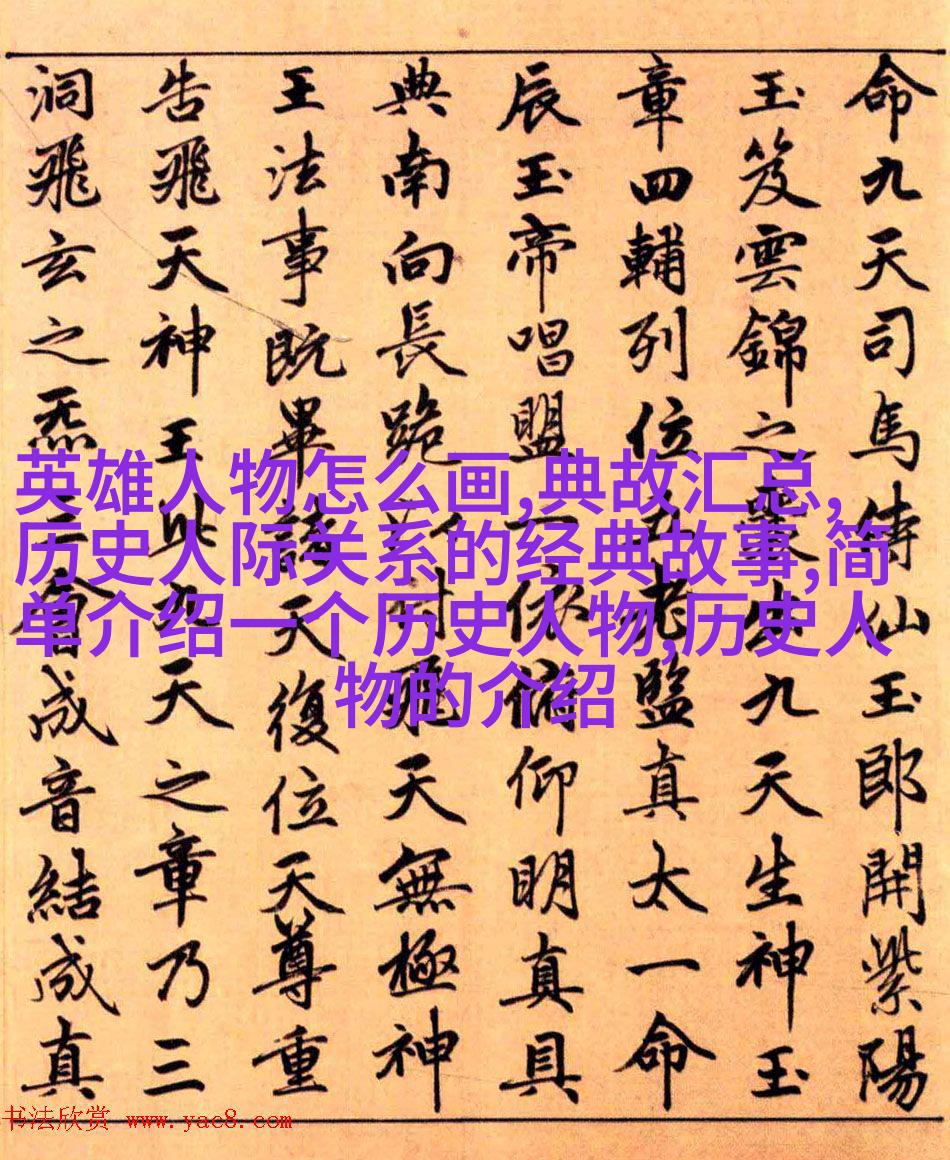 命九天司馬侍仙玉郎開紫陽
玉笈雲錦之囊出九天生神玉
章四輔列位五老監真太一命
辰玉帝唱盟一依俯仰明真具
典南向長跪付飛天無極神
王法事既畢諸天復位天尊重
告飛天神王此九天之章乃三
洞飛玄之炁三合成音結成真
英雄人物怎么画,典故汇总,
历史人际关系的经典故事,简
单介绍一个历史人物,历史人
物的介绍
书法欣赏 www.yac8.com